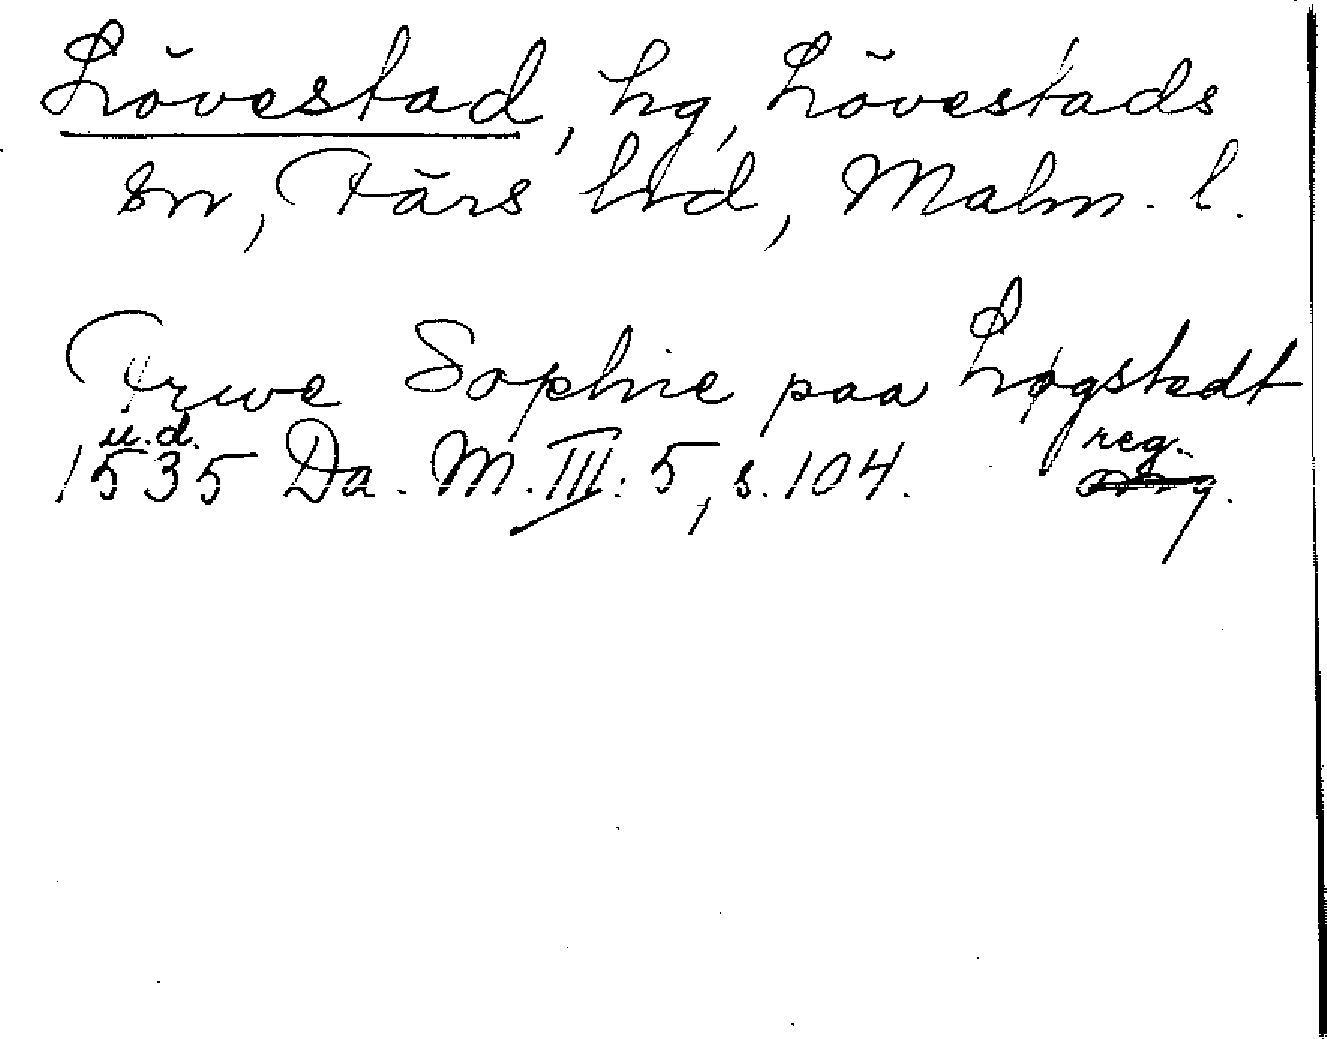 Lövestad, hg, Lövestads
sn, Färs hd, Malm. l.
Fruwe Sophie paa Løgstedt
u.d. reg.
1535 Da. M. III: 5, s. 104.